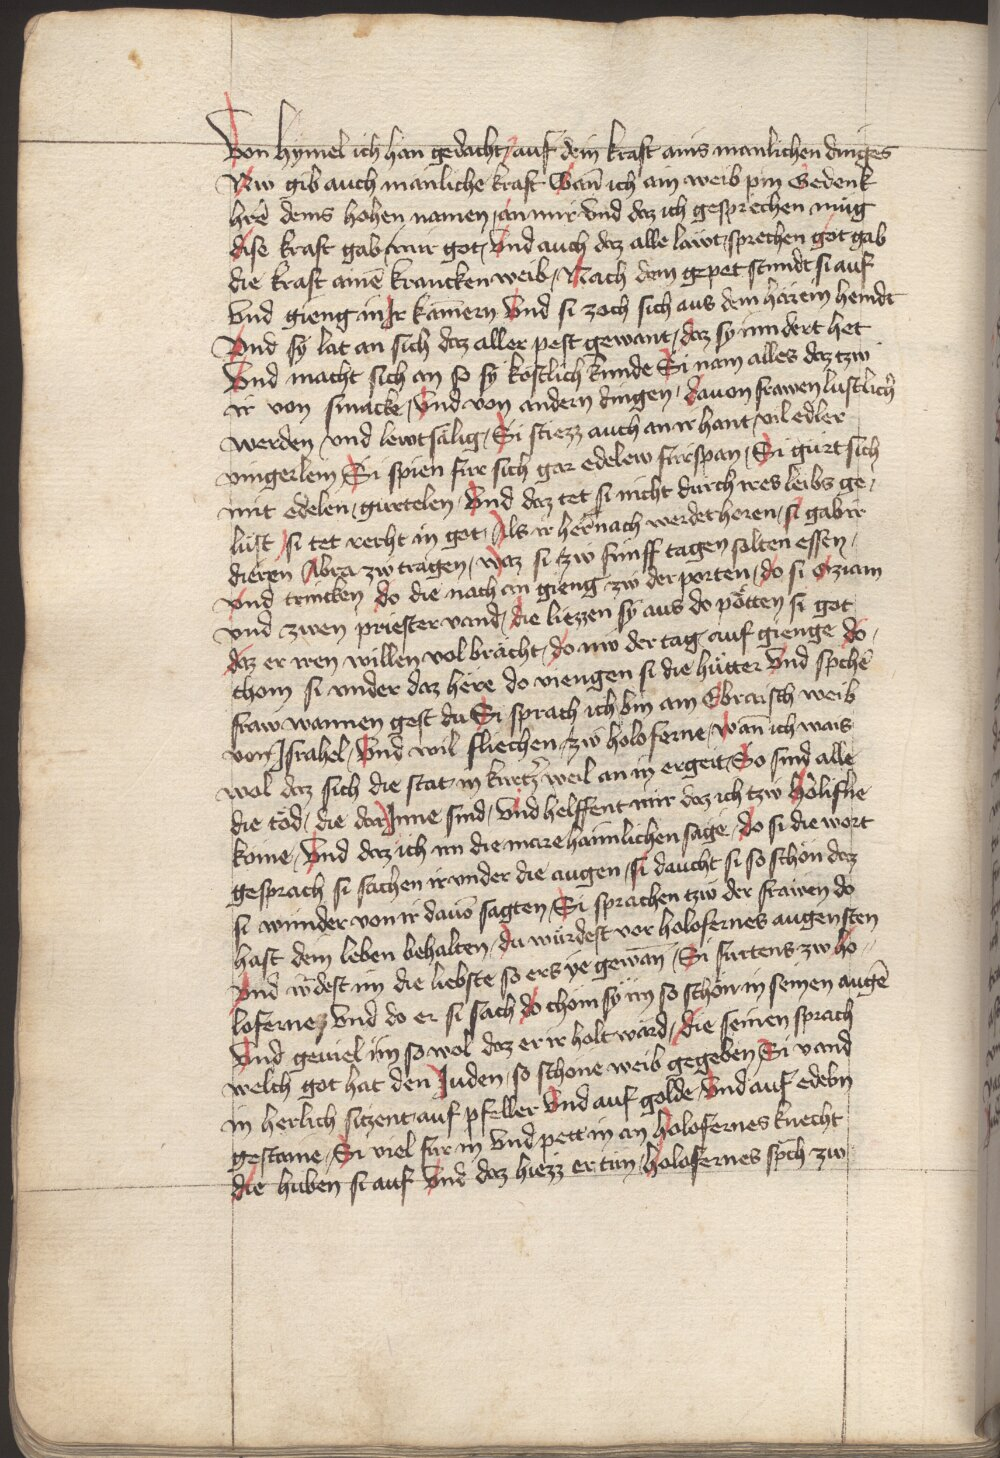 Von hymel ich han gedacht auf dein kraft ains manlichen dinges
Nw gib auch manliche kraft Wān ich am weib pin Gedenk
herē deins hohen namen an mir Vnd daz ich gesprechen müg
dise kraft gab mir got Vnd auch daz alle läwt sprechen got gab
die kraft ainē krancken weib Nach dem gepet stundt si auf
Vnd gieng in Jr kamern Vnd si zoch sich aus dem härem hemdt
Vnd sy lat an sich daz aller pest gewant daz sy inndert het
Vnd macht sich an so sy köstlich kunde Si nam alles daz tzw
ir von smacke Vnd von andern dingen dauon frawen lustlich
werden vnd lewtsälig Si stiezz auch an ir hant vil edler
vingerlein Si spien für sich gar edelew fürspan Si gürt sich
mit edelen gürtelen Vnd daz tet si nicht durch ires leibs ge
lüst si tet recht in got Als ir hernach werdet heren si gab ir
dieren Abra zw tragen waz si zw fünff tagen solten essen
vnd trincken do die nach an gieng zw der porten do si Oziam
vnd zwen priester vand die liezzen sy aus do pötten si got
daz er iren willen volbrächt do nw der tag auf gienge do
chom si vnder daz here do viengen si die hütter Vnd spchē
fraw wannen gest du Si sprach ich bin am Ebraisch weib
von Jsrahel Vnd wil fliechen zw holoferne wān ich wais
wol daz sich die stat in kurtz weil an in ergeit So sind alle
die töd die dar Jnne sind Vnd helffent mir daz ich tzw holifne
kome Vnd daz ich im die mare haimlichen sage do si die wort
gesprach si sachen ir vnder die augen si daucht si so schön daz
si wunder von ir dauō sagten Si sprachen tzw der frawen do
hast dein leben behalten du würdest vor holofernes augensten
Vnd wdest im die liebste so ers ye gewān Si furtens zw ho
lofernez Vnd do er si sach do chom sy im so schön in seinen augē
Vnd geuiel im so wol daz er ir holt ward die seinen sprach
welch got hat den Juden so schöne weib gegeben Si vand
in herlich sitzent auf pfeller Vnd auf golde Vnd auf edeln
gestaine Si viel für in Vnd pett in an holofernes knecht
die huben si auf Vnd daz hiezz er tün holofernes spch zw